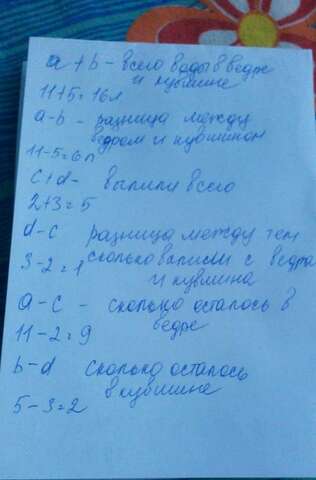 a + b - всего воды в ведре
и кувшине
11+5=16л
a-b - разница между
ведром и кувшином
11-5=6л
c+d- вылили всего
2+3=5
d-c разница между тем
сколько вылили с ведра
и кувшина
3-2=1
a-c - сколько осталось в
ведре
11-2=9
b-d сколько осталось
в кувшине
5-3=2